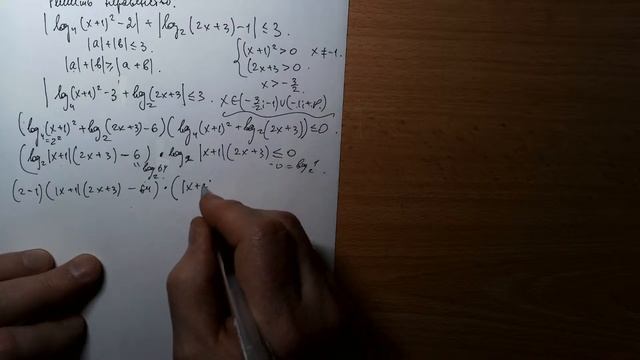 Решить неравенство.
| log₄(x+1)² − 2 | + | log₂(2x+3) − 1 | ≤ 3.
|a| + |b| ≤ 3.
|a| + |b| ≥ |a + b|.
{ (x+1)² > 0 x ≠ −1.
(2x+3 > 0.
x > −3/2.
| log₄(x+1)² − 3 + log₂(2x+3) | ≤ 3. x ∈ (−3/2; −1) ∪ (−1; +∞)
(log₄(x+1)² + log₂(2x+3) − 6)(log₄(x+1)² + log₂(2x+3)) ≤ 0.
4 = 2²
(log₂|x+1|(2x+3) − 6) · log₂|x+1|(2x+3) ≤ 0
log₂64 0 = log₂1
(2−1)(|x+1|(2x+3) − 64) · (|x+1